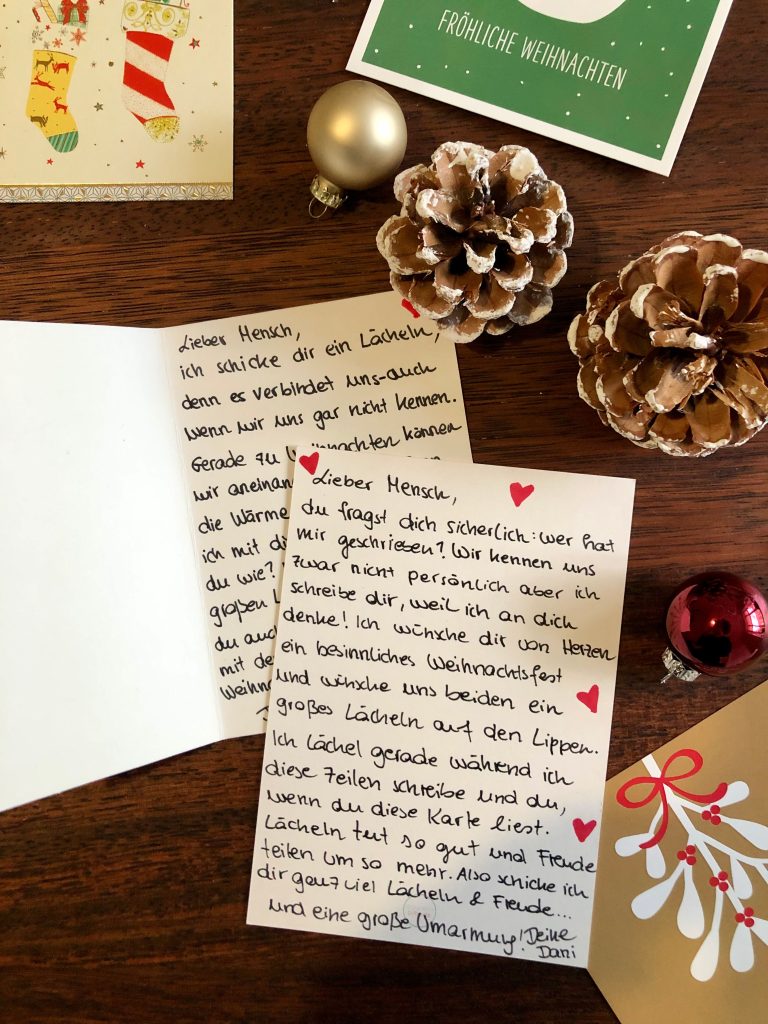 FRÖHLICHE WEIHNACHTEN
Lieber Mensch,
ich schicke dir ein Lächeln,
denn es verbindet uns-auch
wenn wir uns gar nicht kennen.
Gerade zu Weihnachten können
wir aneinan
die Wärme
ich mit di
du wie?
großen L
du auch
mit de
Weihna
Lieber Mensch,
du fragst dich sicherlich: wer hat
mir geschrieben? Wir kennen uns
zwar nicht persönlich aber ich
schreibe dir, weil ich an dich
denke! Ich wünsche dir von Herzen
ein besinnliches Weihnachtsfest
und wünsche uns beiden ein
großes Lächeln auf den Lippen.
Ich lächel gerade während ich
diese Zeilen schreibe und du,
wenn du diese Karte liest.
Lächeln tut so gut und Freude
teilen um so mehr. Also schicke ich
dir ganz viel Lächeln & Freude...
und eine große Umarmung! Deine
Dani